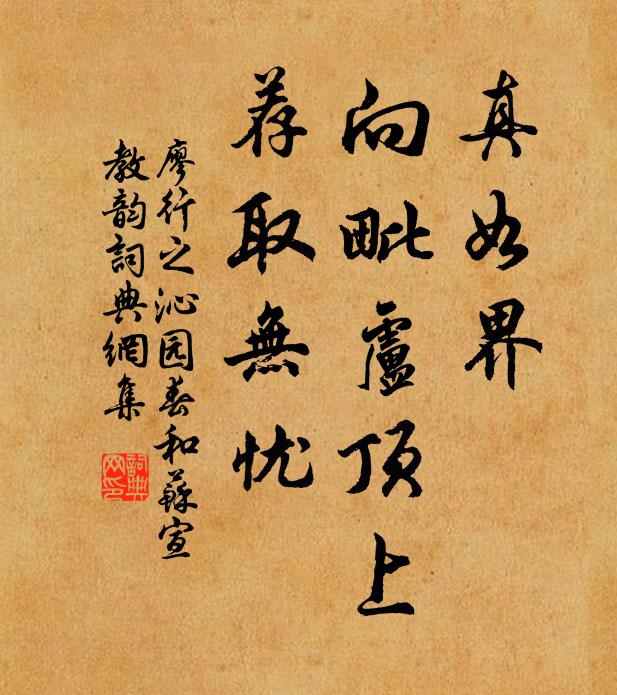 真如界
向毗盧顶上
荐取無忧
廖行之沁园春和蘇宣
教韵詞典網集
詞典
网印